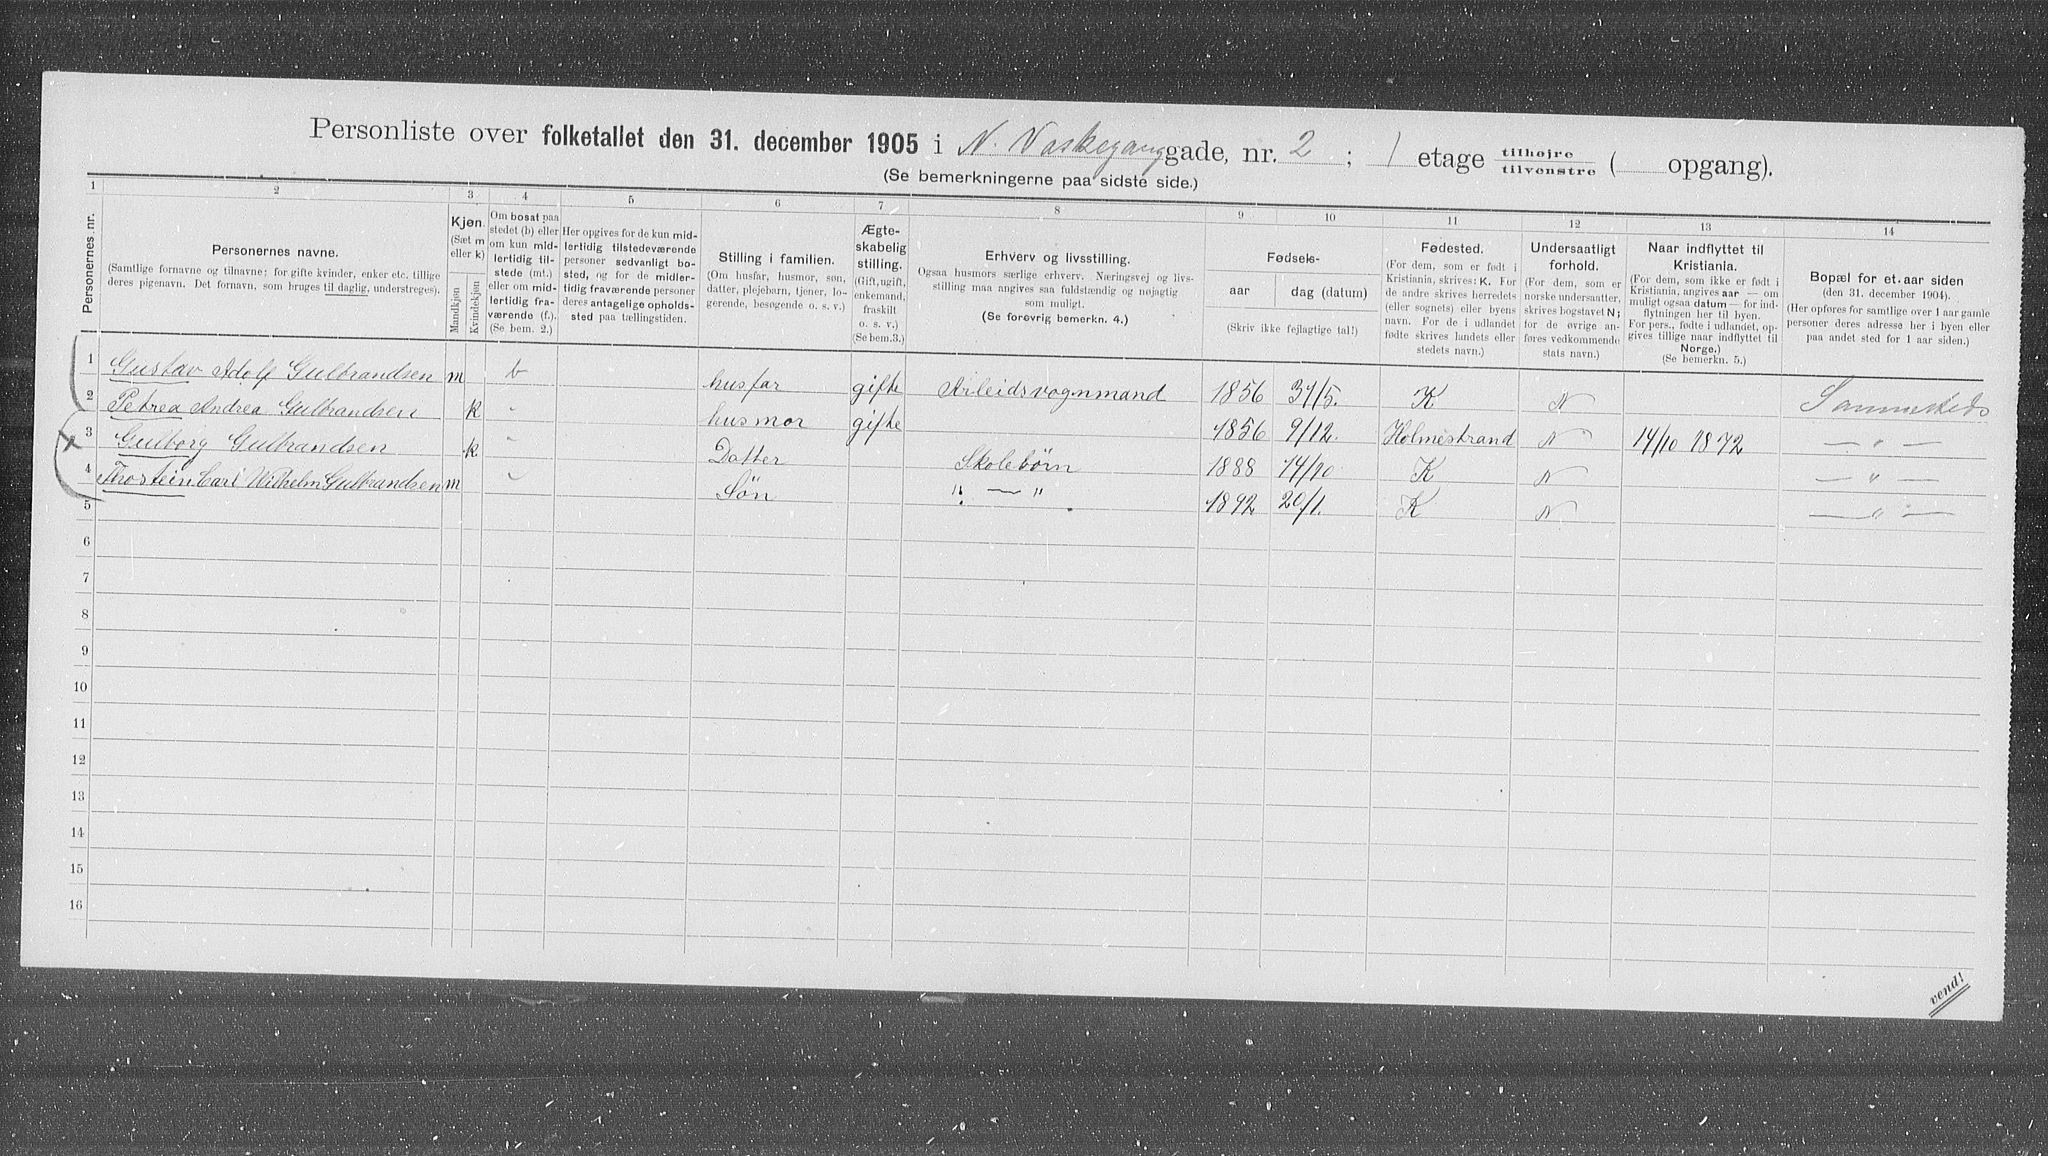 Personliste over folketallet den 31. december 1905 i N. Vaskeganggade, nr. 2 ; 1 etage tilhøjre / tilvenstre ( opgang).
(Se bemerkningerne paa sidste side.)
1 2 3 4 5 6 7 8 9 10 11 12 13 14
Personernes nr.
Personernes navne.
(Samtlige fornavne og tilnavne; for gifte kvinder, enker etc. tillige
deres pigenavn. Det fornavn, som bruges til daglig, understreges).
Kjøn.
(Sæt m
eller k)
Mandkjøn
Kvindekjøn
Om bosat paa
stedet (b) eller
om kun mid-
lertidig til-
stede (mt.)
eller om mid-
lertidig fra-
værende (f.).
(Se bem. 2.)
Her opgives for de kun mid-
lertidig tilstedeværende
personer sedvanligt bo-
sted, og for de midler-
tidig fraværende personer
deres antagelige opholds-
sted paa tællingstiden.
Stilling i familien.
(Om husfar, husmor, søn,
datter, plejebarn, tjener, lo-
gerende, besøgende o. s. v.)
Ægte-
skabelig
stilling.
(Gift, ugift,
enkemand,
fraskilt
o. s. v.)
(Se bem.3.)
Erhverv og livsstilling.
Ogsaa husmors særlige erhverv. Næringsvej og livs-
stilling maa angives saa fuldstændig og nøjagtig
som muligt.
(Se forøvrig bemerkn. 4.)
Fødsels-
aar
dag (datum)
(Skriv ikke fejlagtige tal!)
Fødested.
(For dem, som er født i
Kristiania, skrives: K. For
de andre skrives herredets
(eller sognets) eller byens
navn. For de i udlandet
fødte skrives landets eller
stedets navn.)
Undersaatligt
forhold.
(For dem, som er
norske undersaatter,
skrives bogstavet N;
for de øvrige an-
føres vedkommende
stats navn.)
Naar indflyttet til
Kristiania.
(For dem, som ikke er født i
Kristiania, angives aar — om
muligt ogsaa datum — for ind-
flytningen her til byen.
For pers., fødte i udlandet, op-
gives tillige naar indflyttet til
Norge.)
(Se bemerkn. 5.)
Bopæl for et aar siden
(den 31. december 1904).
(Her opføres for samtlige over 1 aar gamle
personer deres adresse her i byen eller
paa andet sted for 1 aar siden.)
1 Gustav Adolf Gulbrandsen m b husfar gifte Arbeidsvognmand 1856 31/5. K N Sammesteds
2 Petrea Andrea Gulbrandsen k " husmor gifte 1856 9/12. Holmestrand N 14/10 1872 — " —
3 Gulborg Gulbrandsen k " Datter Skolebørn 1888 14/10 K N — " —
4 Thorstein Carl Wilhelm Gulbrandsen m " Søn " — " 1892 20/1. K N — " —
5
6
7
8
9
10
11
12
13
14
15
16
vend!